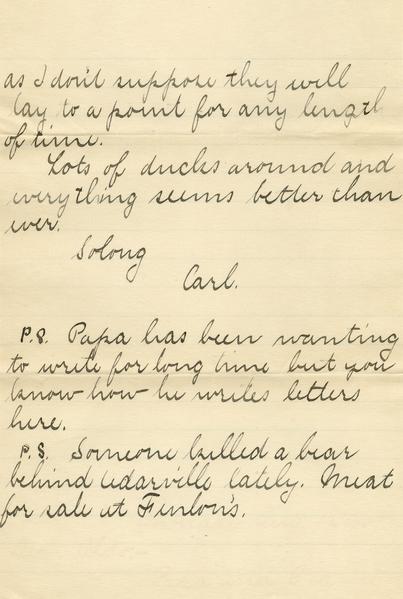 as I don't suppose they will
lay to a point for any length
of time.
Lots of ducks around and
everything seems better than
ever.
Solong
Carl.
P.S. Papa has been wanting
to write for long time but you
know how he writes letters
here.
P.S. Someone killed a bear
behind Cedarville lately. Meat
for sale at Fenlon's.